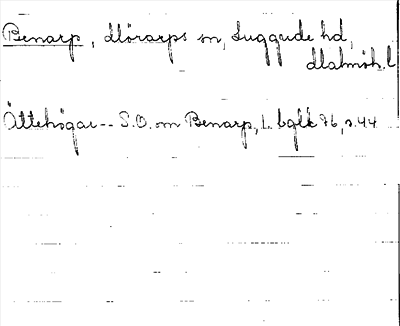 Benarp, Mörarps sn, Luggude hd,
Malmöh. l.
Ättehögar -- S.O. om Benarp, L. bglt 76, s. 44